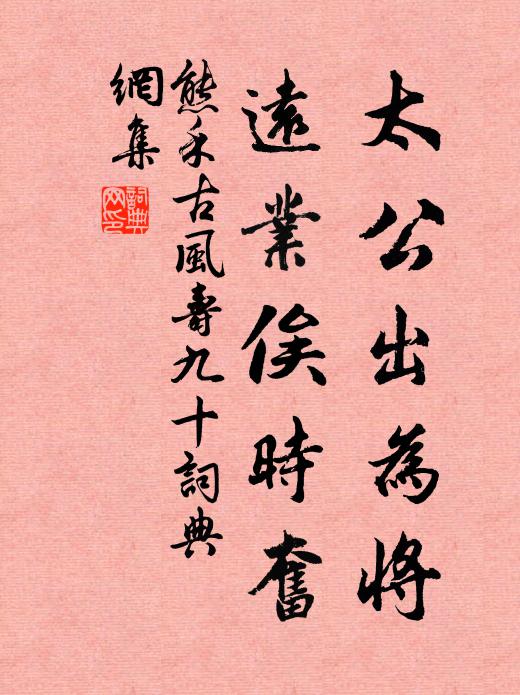 太公出為將
遠業俟時奮
熊禾古風壽九十詞典
網集
詞典
网印